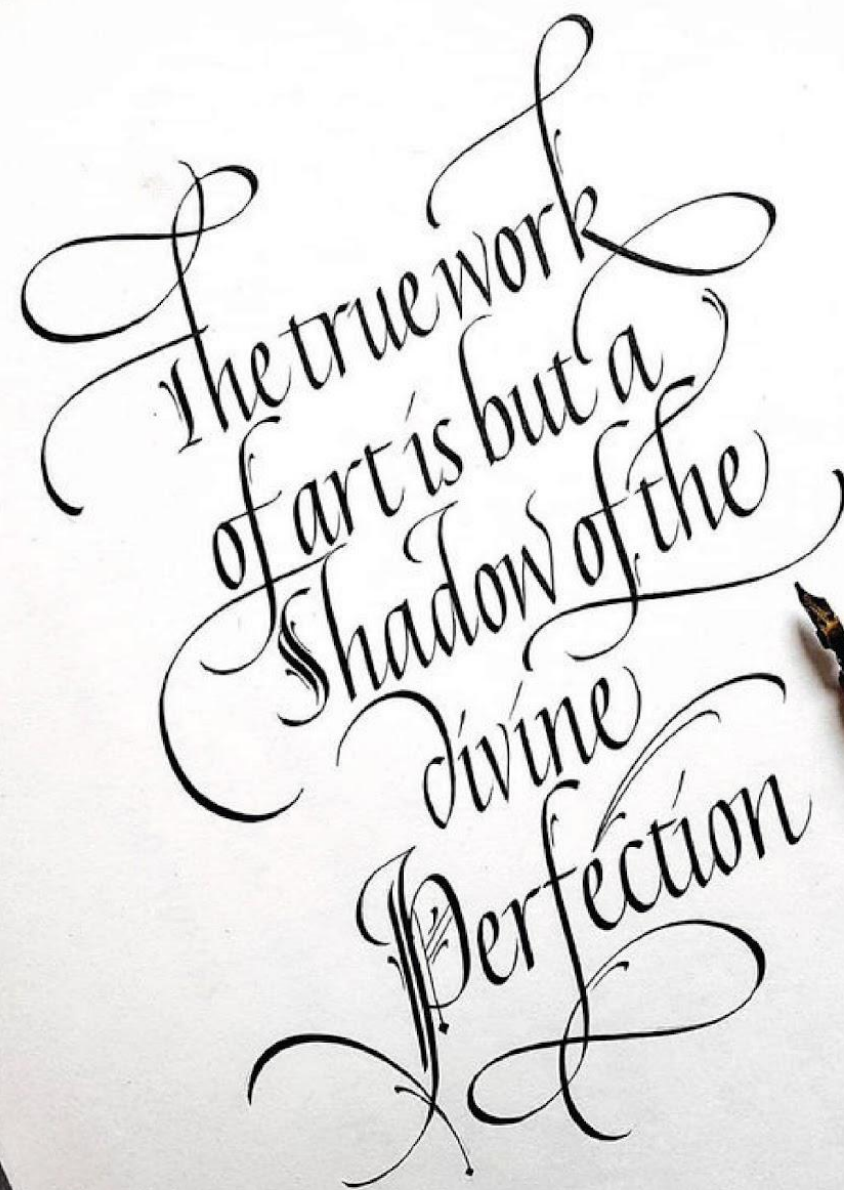 The true work
of art is but a
Shadow of the
divine
Perfection